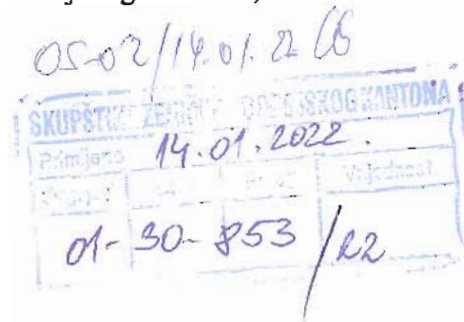 05-02/14.01.22
SKUPŠTINA ZENIČKO DOBOJSKOG KANTONA
Primljeno 14.01.2022.
Vrijednost
01-30-853/22